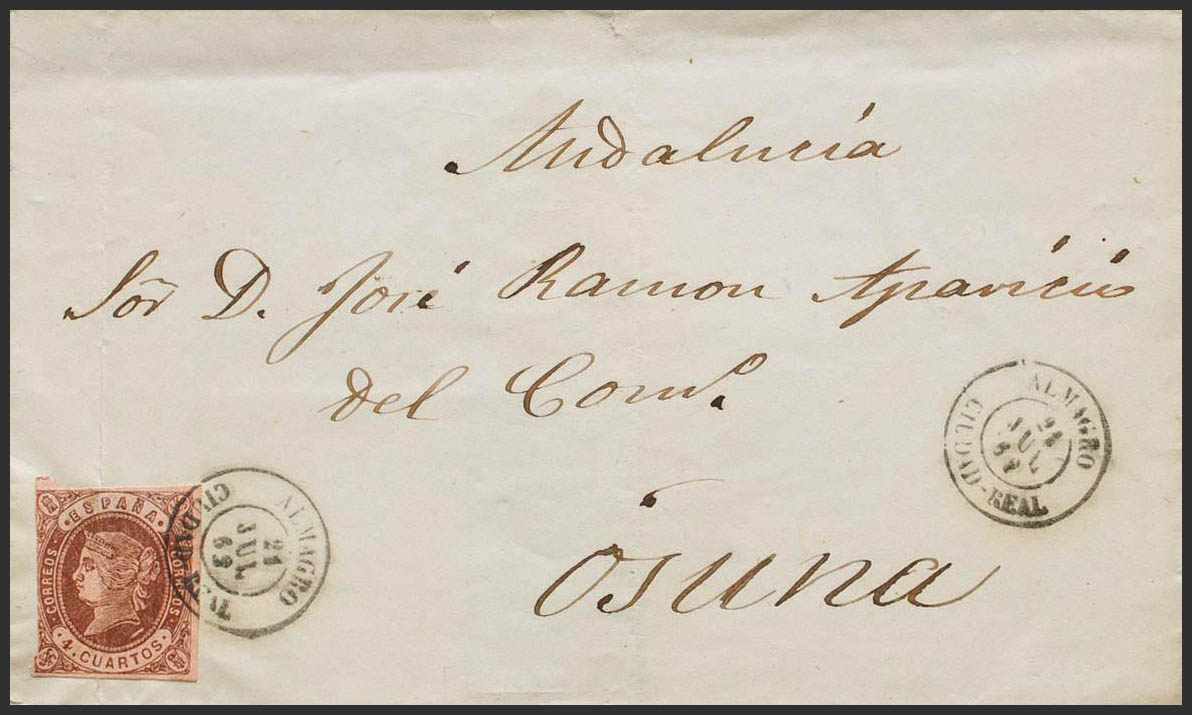 Andalucía
Sōr D. José Ramon Aparicio
del Comº.
Osuna
ALMAGRO
21
JUL
63
CIUDAD-REAL
ALMAGRO
21
JUL
63
CIUDAD-REAL
·ESPAÑA·
CORREOS
CORREOS
·4·CUARTOS·